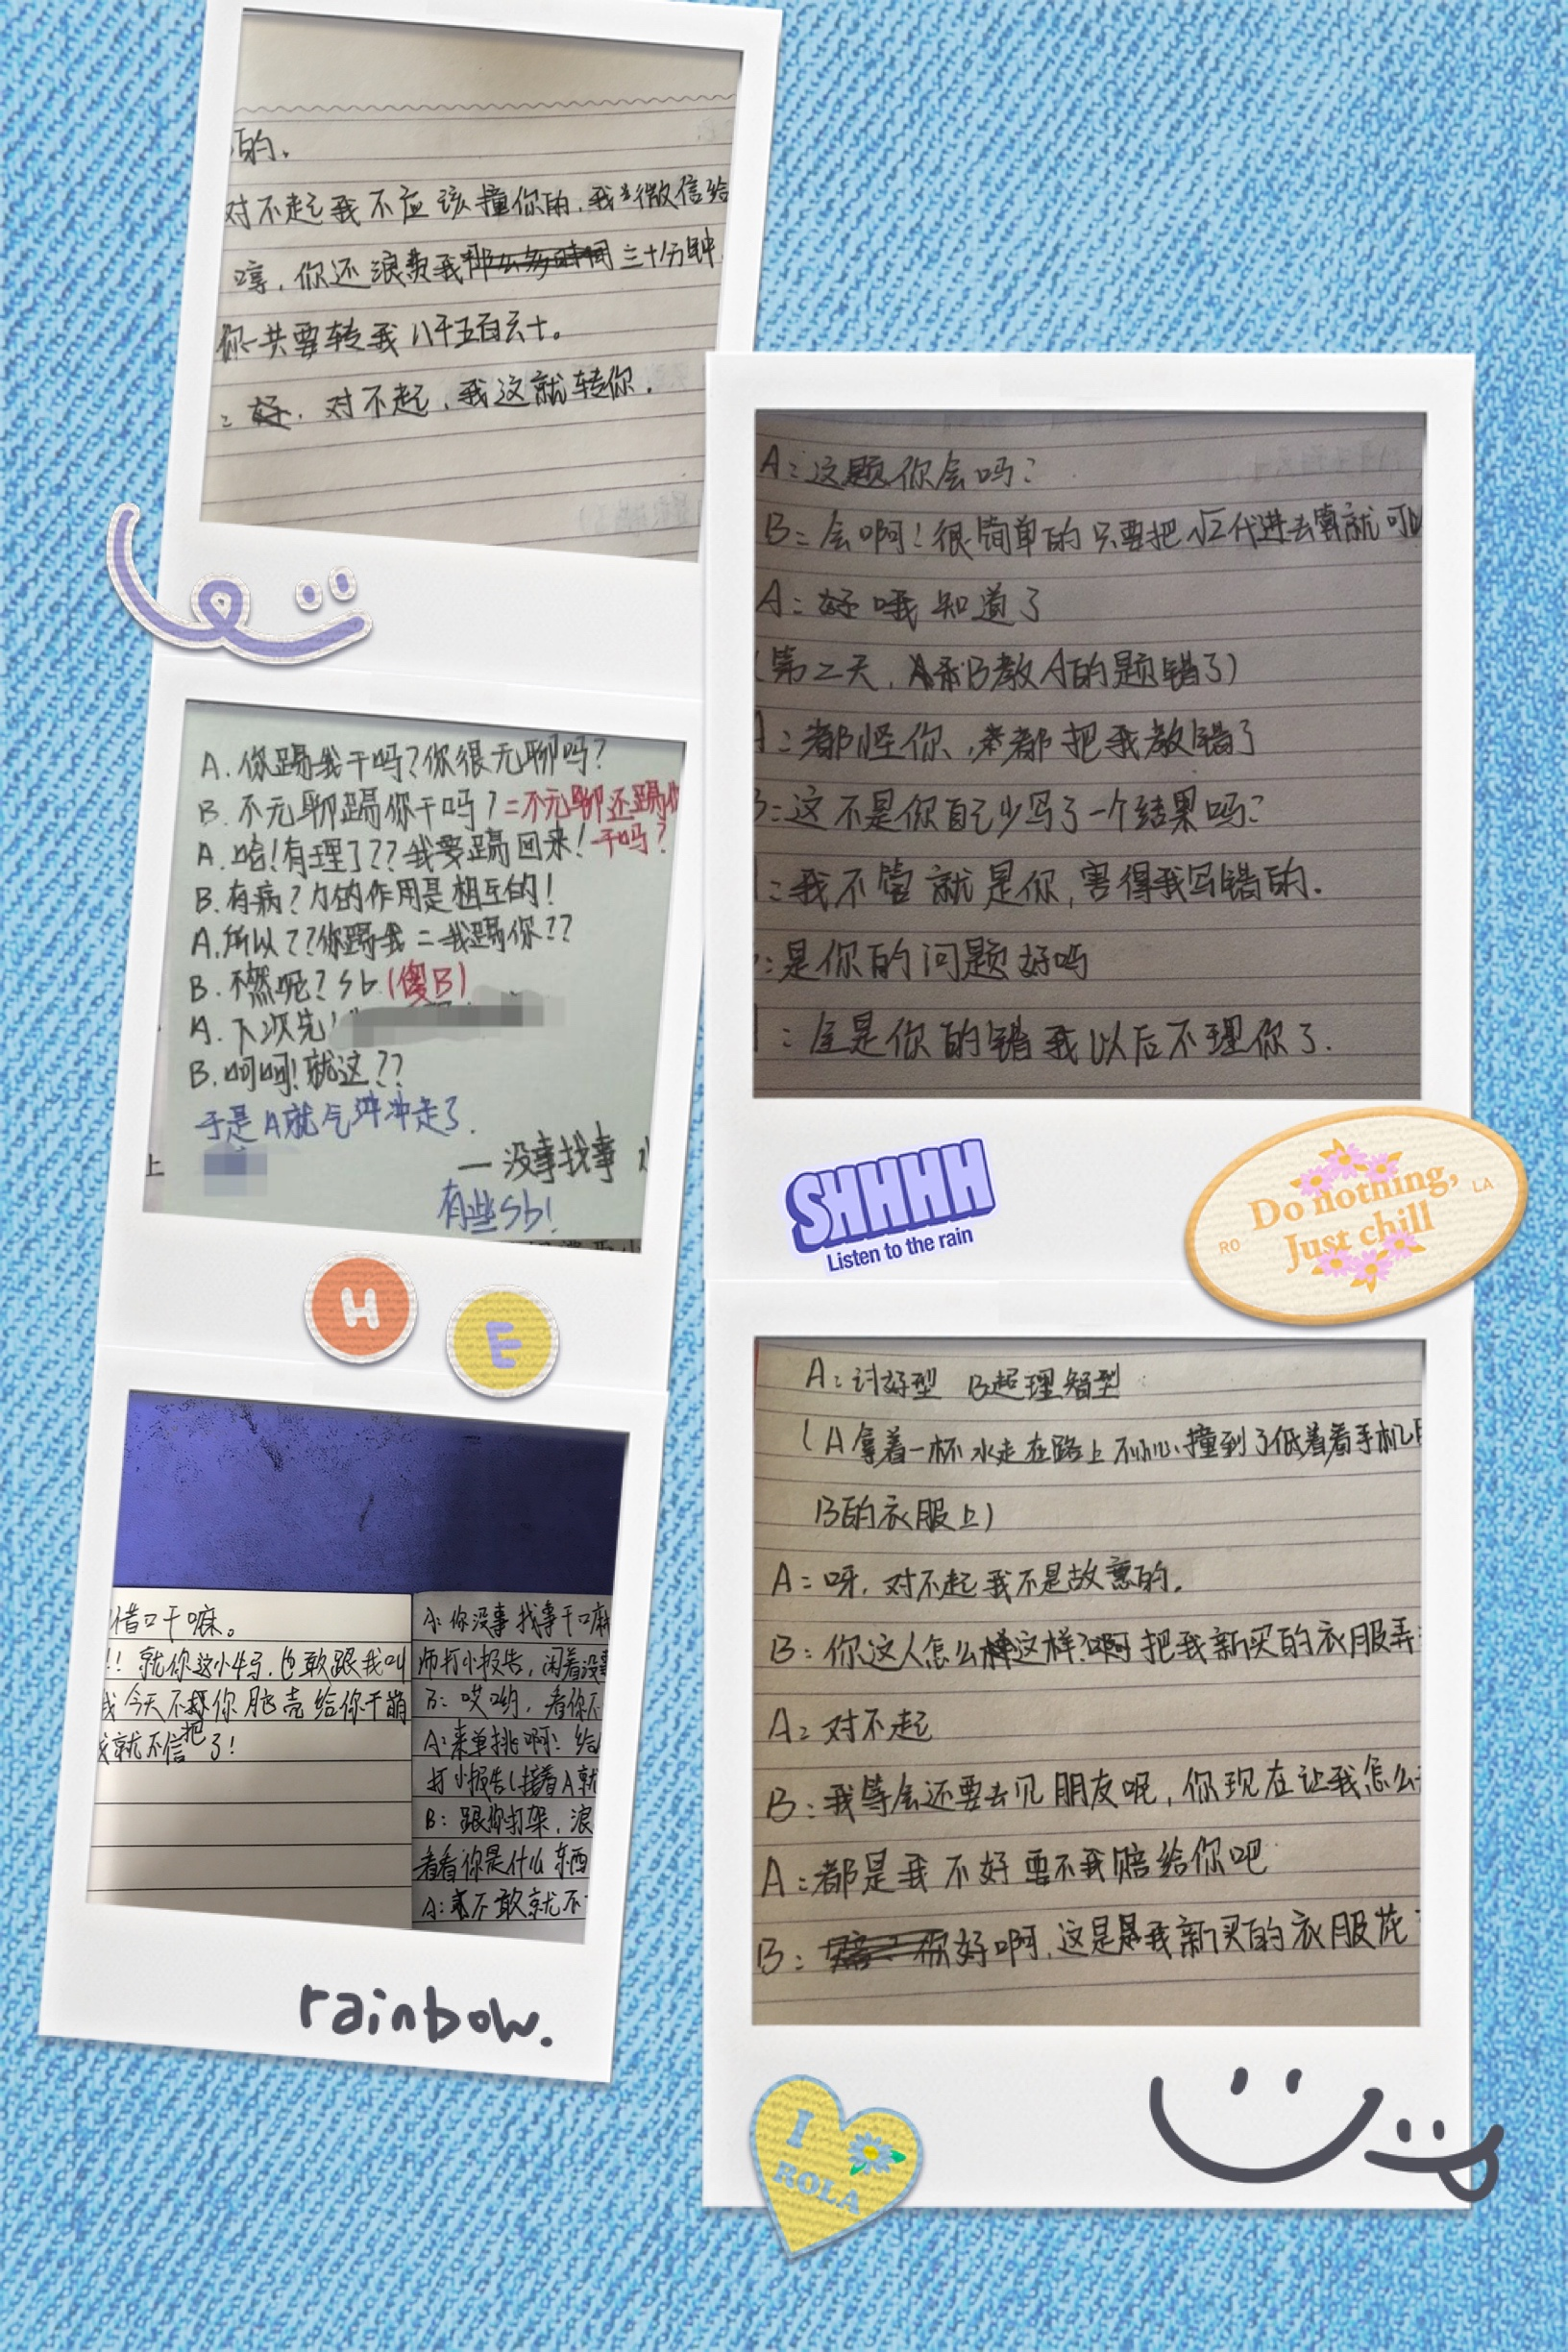 的。
对不起我不应该撞你的,我加微信给
哼,你还浪费我三十分钟
你一共要转我八千五百六十。
:好,对不起,我这就转你.
A.你踢我干吗?你很无聊吗?
B.不无聊踢你干吗?=不无聊还踢你
A.哈!有理了??我要踢回来!干吗?
B.有病?力的作用是相互的!
A.所以??你踢我=我踢你??
B.不然呢?sb(傻B)
A.下次先
B.呵呵!就这??
于是A就气冲冲走了.
—没事找事
上
有些sb!
H
E
借口干嘛。
!!就你这小牛马,也敢跟我叫
我今天不把你脑壳给你干崩
我就不信了!
A:你没事找事干嘛
师打小报告,闲着没事
B:哎哟,看你不
A:来单挑啊!给
打小报告(接着A就
B:跟你打架,浪
看看你是什么东西
A:不敢就不
rainbow.
A:这题你会吗?
B:会啊!很简单的只要把√2代进去算就可以
A:好哦知道了
(第二天,B教A的题错了)
A:都怪你,都把我教错了
B:这不是你自己少写了一个结果吗?
A:我不管就是你,害得我写错的.
:是你的问题好吗
A:全是你的错我以后不理你了.
SHHHH
Listen to the rain
Do nothing,
RO
LA
Just chill
A:讨好型 B超理智型
(A拿着一杯水走在路上不小心撞到了低着看手机
B的衣服上)
A:呀,对不起我不是故意的.
B:你这人怎么这样?啊把我新买的衣服弄
A:对不起
B:我等会还要去见朋友呢,你现在让我怎么
A:都是我不好要不我赔给你吧
B:你好啊,这是我新买的衣服花
I
ROLA